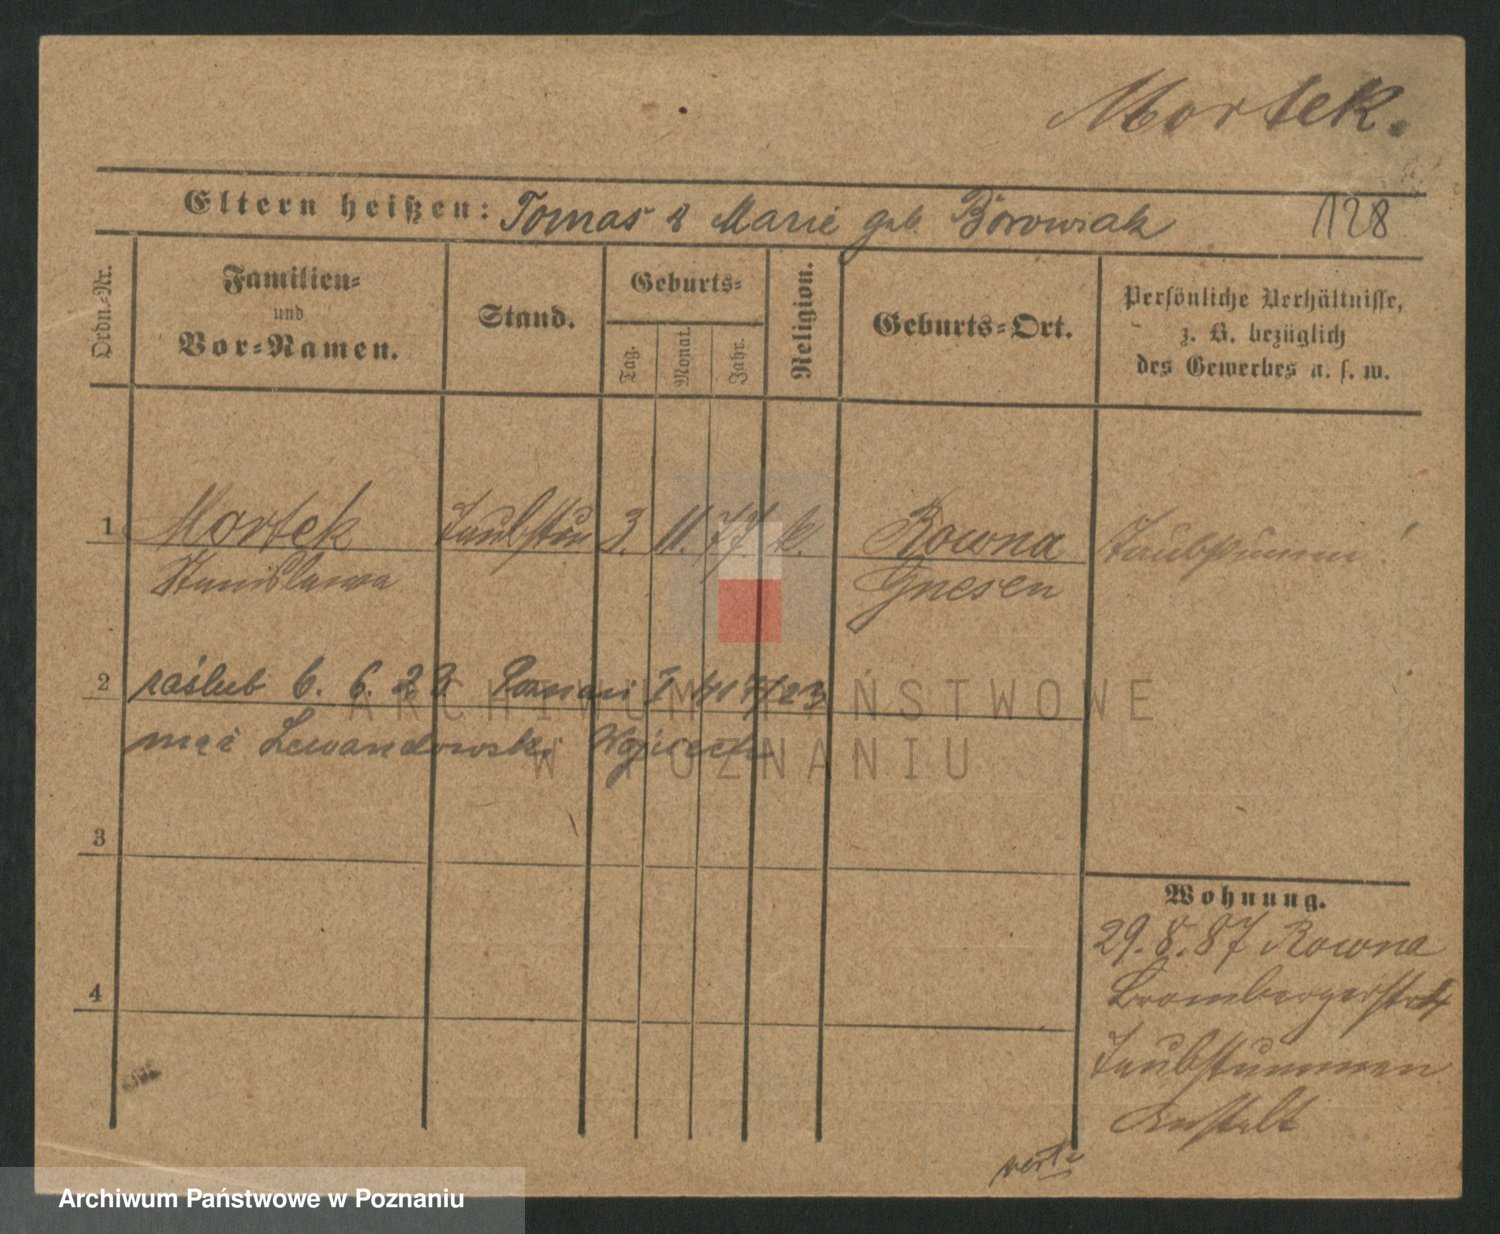 Mortek.
Eltern heißen: Tomas & Marie geb. Borowiak 128
Ordn.-Nr.
Familien-
und
Vor-Namen.
Stand.
Geburts-
Tag.
Monat.
Jahr.
Religion.
Geburts-Ort.
Persönliche Verhältnisse,
z. B. bezüglich
des Gewerbes u. s. w.
1 Mortek Taubstum 3. 11. 77. k. Rowna Taubstumm!
Stanislawa Gnesen
2 zaślub 6. 6. 23 Poznań I
mąż Lewandowski Wojciech
3
4
Wohnung.
29. 8. 87 Rowna
Brombergerstr
Taubstummen
Anstalt
verte
ARCHIWUM PAŃSTWOWE
W POZNANIU
Archiwum Państwowe w Poznaniu